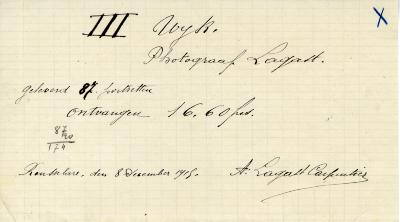 III Wyk.
Photograaf Lagast.
geleverd 87 portretten
ontvangen 16.60 frs.
87
20
174
den 8 December 1915.
A. Lagast Carpentier
X